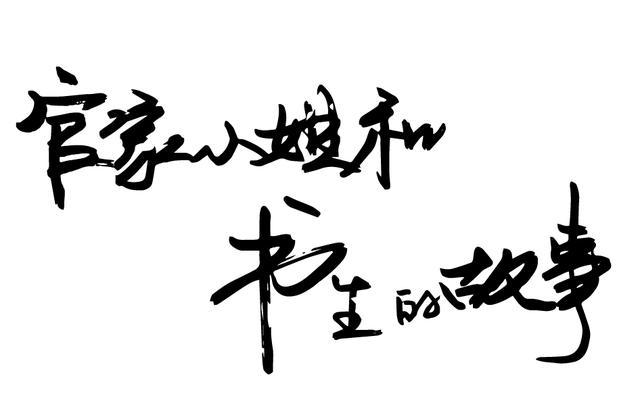 官家小姐和
书生的故事